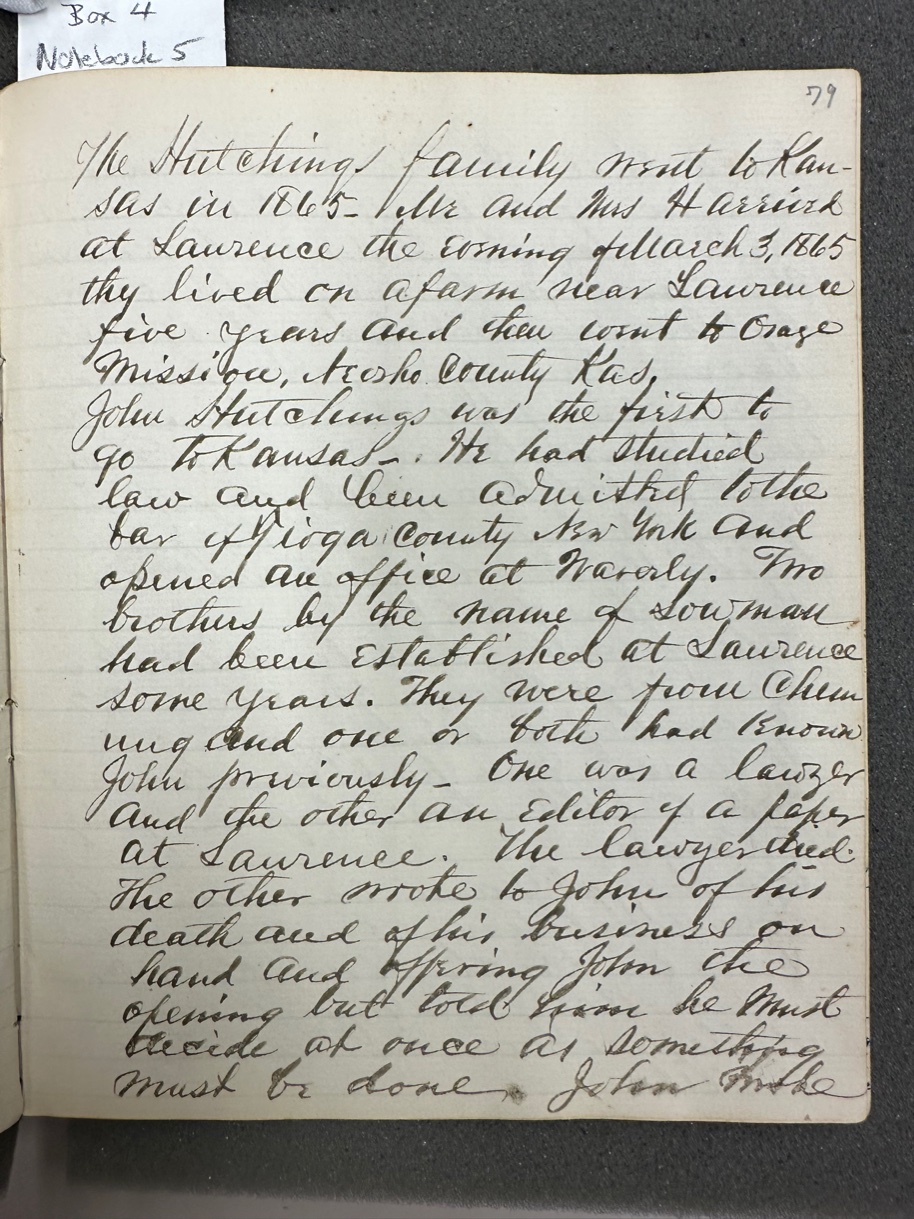 Box 4
Notebook 5
79
The Hutchings family went to Kan-
sas in 1865- Mr and Mrs H arrived
at Lawrence the evening of March 3, 1865
thy lived on a farm near Lawrence
five years and then went to Osage
Mission, Neosho County Kas.
John Hutchings was the first to
go to Kansas-. He had studied
law and been admitted to the
bar of Tioga County New York and
opened an office at Waverly. Two
brothers by the name of Lowman
had been established at Lawrence
some years. They were from Chem
ung and one or both had known
John previously- One was a lawyer
and the other an Editor of a paper
at Lawrence. The lawyer died.
The other wrote to John of his
death and of his business on
hand and offering John the
opening but told him he must
decide at once as something
must be done. John